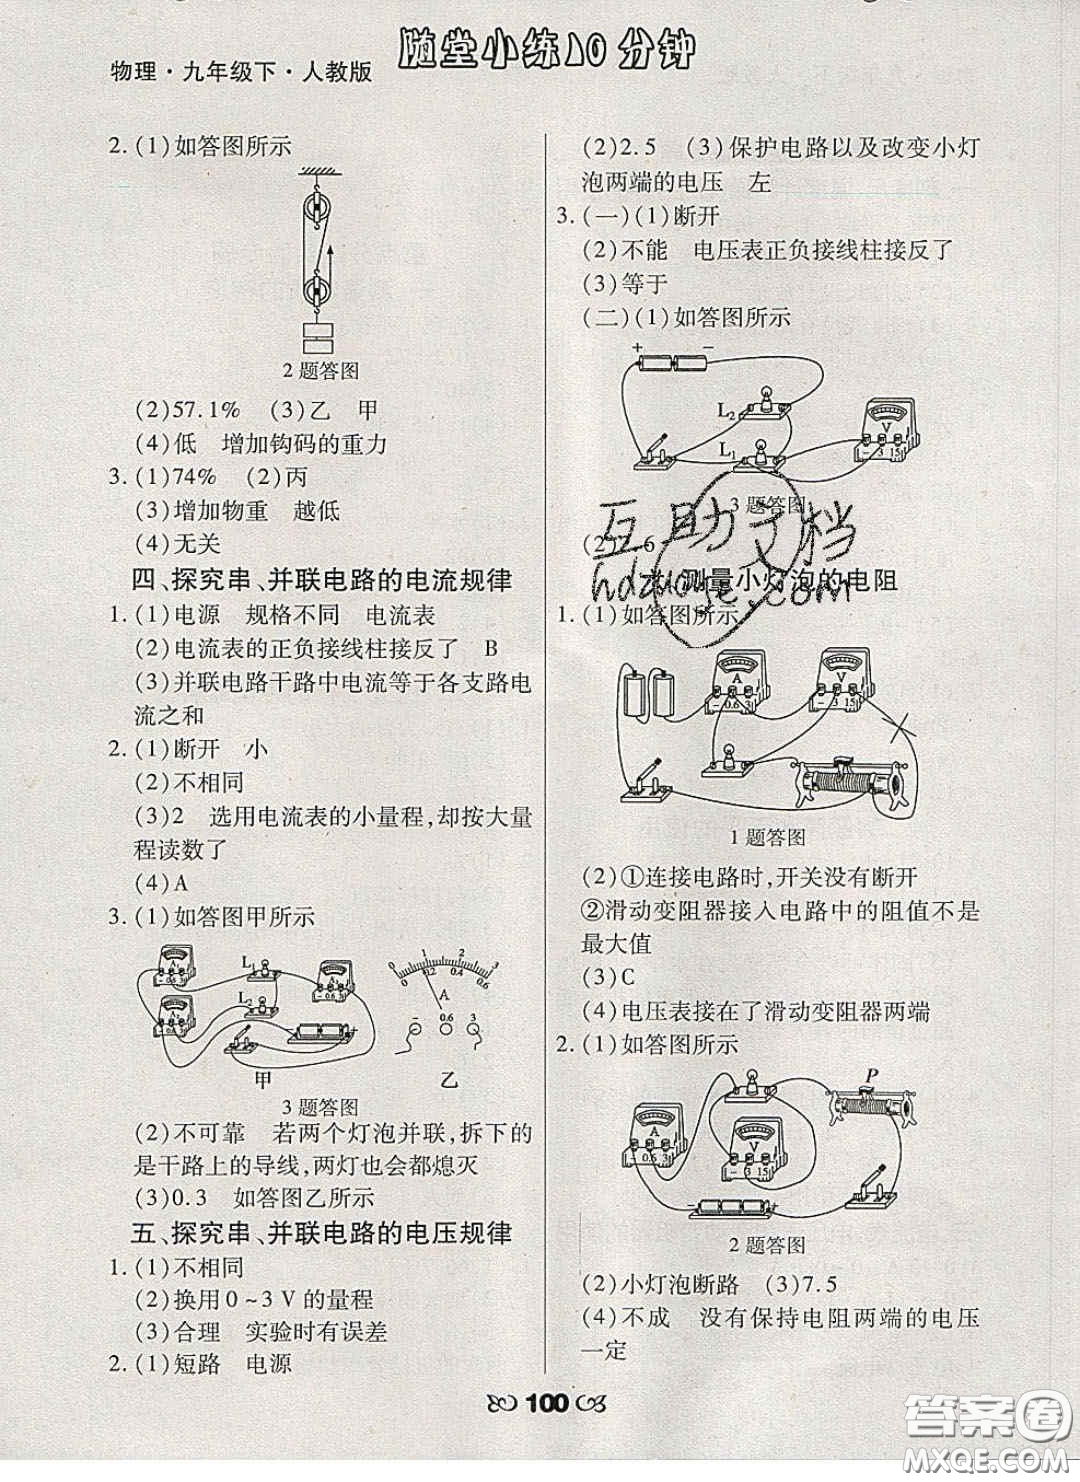 随堂小练10分钟
物理·九年级下·人教版
2. (1)如答图所示
2题答图
(2)57.1% (3)乙 甲
(4)低 增加钩码的重力
3. (1)74% (2)丙
(3)增加物重 越低
(4)无关
四、探究串、并联电路的电流规律
1. (1)电源 规格不同 电流表
(2)电流表的正负接线柱接反了 B
(3)并联电路干路中电流等于各支路电
流之和
2. (1)断开 小
(2)不相同
(3)2 选用电流表的小量程,却按大量
程读数了
(4)A
3. (1)如答图甲所示
L1
L2
A1
A2
A
- 0.6 3
- 0.6 3
- 0.6 3
- +
0 1 2 3
0 0.2 0.4 0.6
A
- 0.6 3
甲 乙
3题答图
(2)不可靠 若两个灯泡并联,拆下的
是干路上的导线,两灯也会都熄灭
(3)0.3 如答图乙所示
五、探究串、并联电路的电压规律
1. (1)不相同
(2)换用0~3 V的量程
(3)合理 实验时有误差
2. (1)短路 电源
(2)2.5 (3)保护电路以及改变小灯
泡两端的电压 左
3. (一)(1)断开
(2)不能 电压表正负接线柱接反了
(3)等于
(二)(1)如答图所示
+ -
L2
L1
V
- 3 15
3题答图
互助文档
hdzuoye.com
测量小灯泡的电阻
1. (1)如答图所示
A
- 0.6 3
V
- 3 15
1题答图
(2)①连接电路时,开关没有断开
②滑动变阻器接入电路中的阻值不是
最大值
(3)C
(4)电压表接在了滑动变阻器两端
2. (1)如答图所示
P
A
- 0.6 3
V
- 3 15
- +
2题答图
(2)小灯泡断路 (3)7.5
(4)不成 没有保持电阻两端的电压
一定
100
答案圈
MXQE.COM